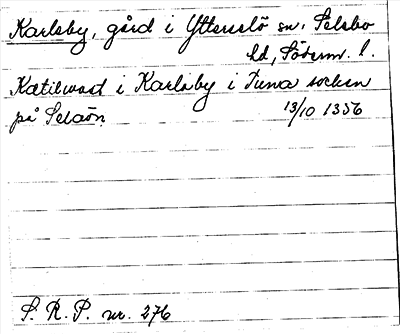 Karleby, gård i Ytterselö sn, Selebo
hd, Söderm. l.
Kætilwast i Karlaby i Tuna socken
på Selaön 13/10 1356
S. R. P. nr. 276